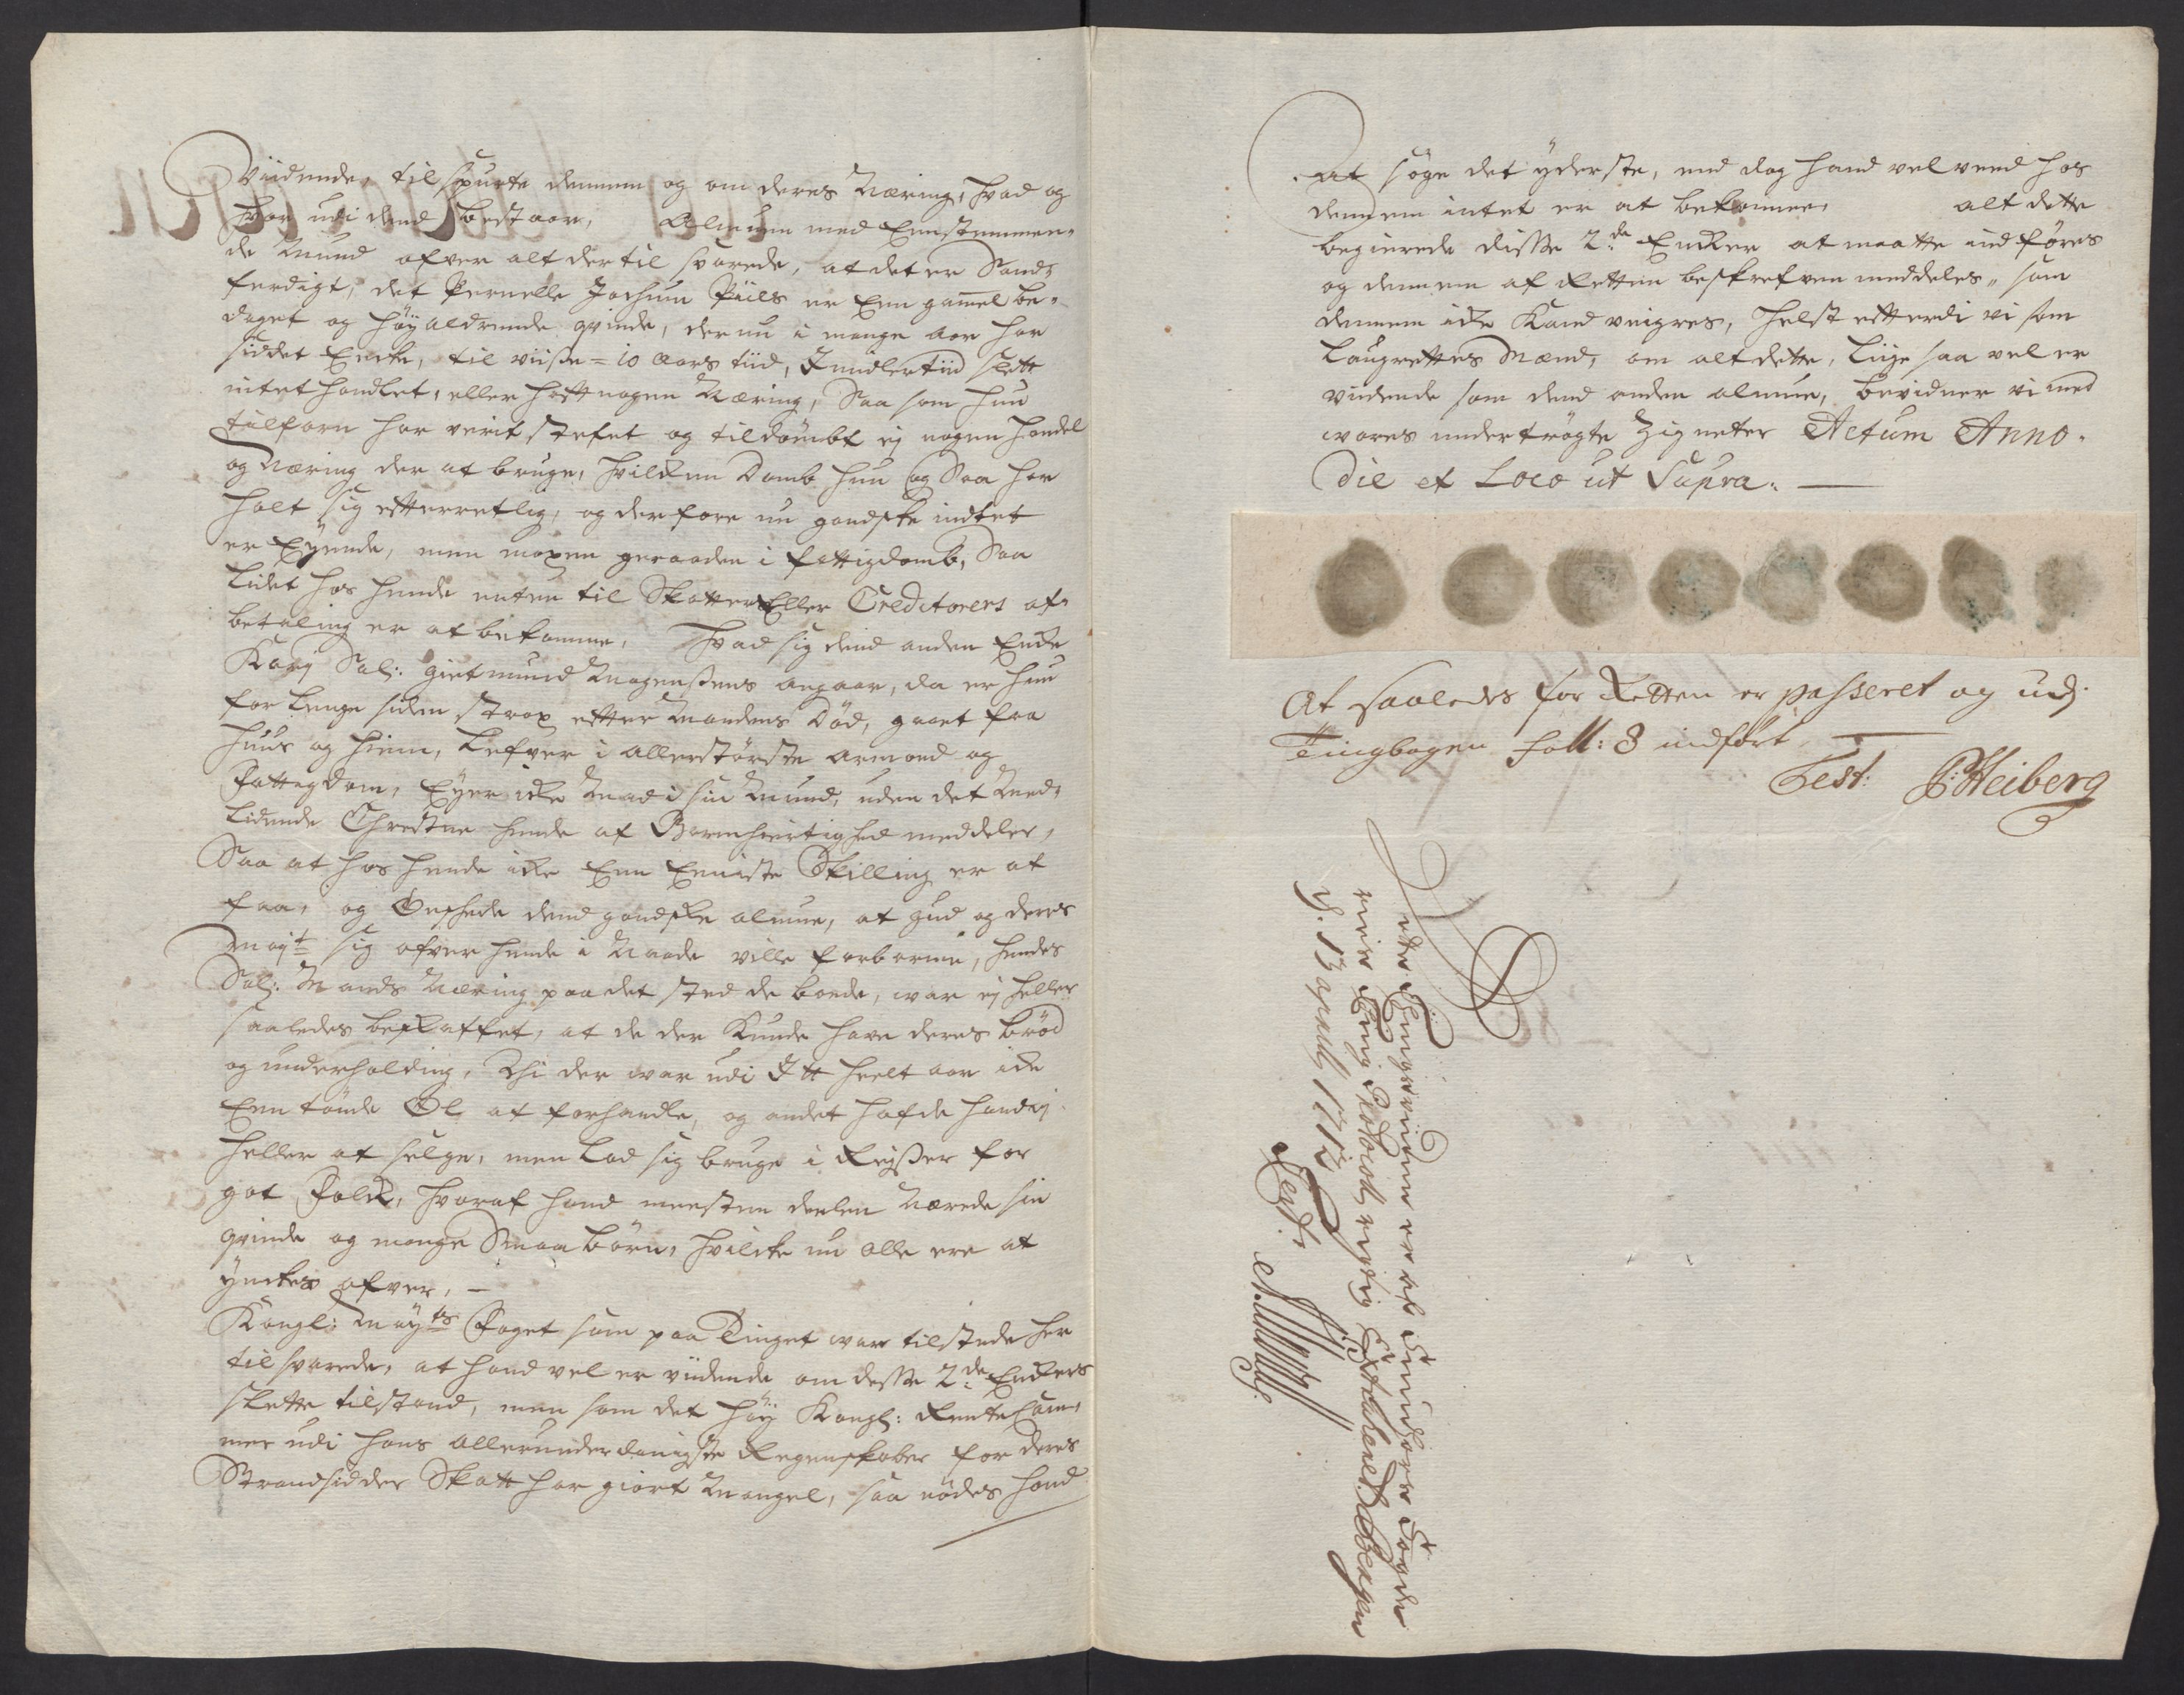 Viidende, tilspurte dennem og om deres Næring, hvad og
hvor udi dend bestaar, Almuen med Eenstemmen-
de Mund ofver alt der til svarede, at det er Sand-
ferdigt, det Pernelle Jochum Piils er Een gam̅el be-
daget og høyaldrende qvinde, der nu i mange aar har
siddet Encke, til viisse = 10 Aars tiid, Imidlertiid slett
intet handlet, eller hafft nogen Næring, Saa som hun
tilforn har verit stefnt og tildømbt ej nogen handel
og Næring der at bruge, hvilken Domb hun og Saa har
holt sig efterretlig, og derfore nu gandske indtet
er Eyende, men megen geraaden i fattigdomb, Saa
lidet hos hende enten til Skatters Eller Creditorers af-
betaling er at bekomme, Hvad sig dend anden Encke
Karj Sal: Giertmund Mogensens angaar, da er hun
for lenge siden strax efter Mandens Død, gaaet fra
huus og hiem, lefver i allerstørste armod og
Fattigdom, Eyer icke Mad i sin Mund, uden det Med-
lidende Christne hende af Barmhiertighed meddeler,
Saa at hos hende icke Een Eeniste Skilling er at
faa, og Ønskede dend gandske almue, at gud og deres
Mayt sig ofver hende i Naade ville forbarme, hendes
Sal: Mands Næring paa det sted de boede, war ej heller
saaledes beskaffet, at de der Kunde have deres brød
og underholding, Thi der war udi Itt heelt aar icke
Een tønde Øl at forhandle, og andet hafde hand ej
heller at selge, men lod sig bruge i Reyser for
got Folck, hvoraf hand meesten deelen Nærede sin
qvinde og mange Smaa børn, hvilcke nu alle ere at
ynckes ofver, —
Kongl: Mayts Foget som paa Tinget war tilstede her
til svarede, at hand vel er viidende om desse 2de Enckers
slette tilstand, men som det høy Kongl: Rente Cam-
mer udi hans allerunderdanigste Regenskaber for deres
Strandsidder Skatt har giort Mangel, saa nødes hand
at søge det yderste, end dog hand vel veed hos
dennem intet er at bekomme, alt dette
begierede disse 2de Encker at maatte indføres
og dennem af Retten beskrefven meddeles, som
dennem icke Kand veigres, Helst efterdi vi som
Laugrettes Mænd, om alt dette, liige saa vel er
viidende som dend anden almue, bevidner vi med
vores undertrögte Zigneter Actum Anno.
Die et Loco ut Supra. —
At saaledes for Retten er passeret og udj
Tingbogen Foll: 8 indført —
Test: Heiberg